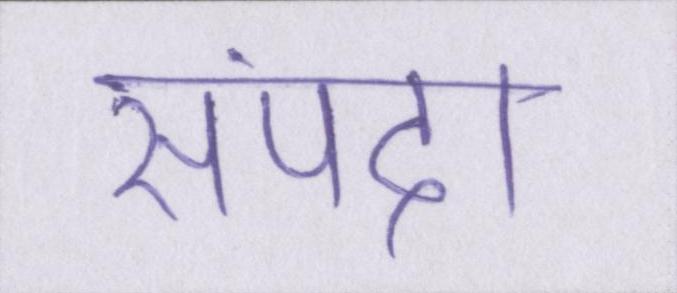 संपदा